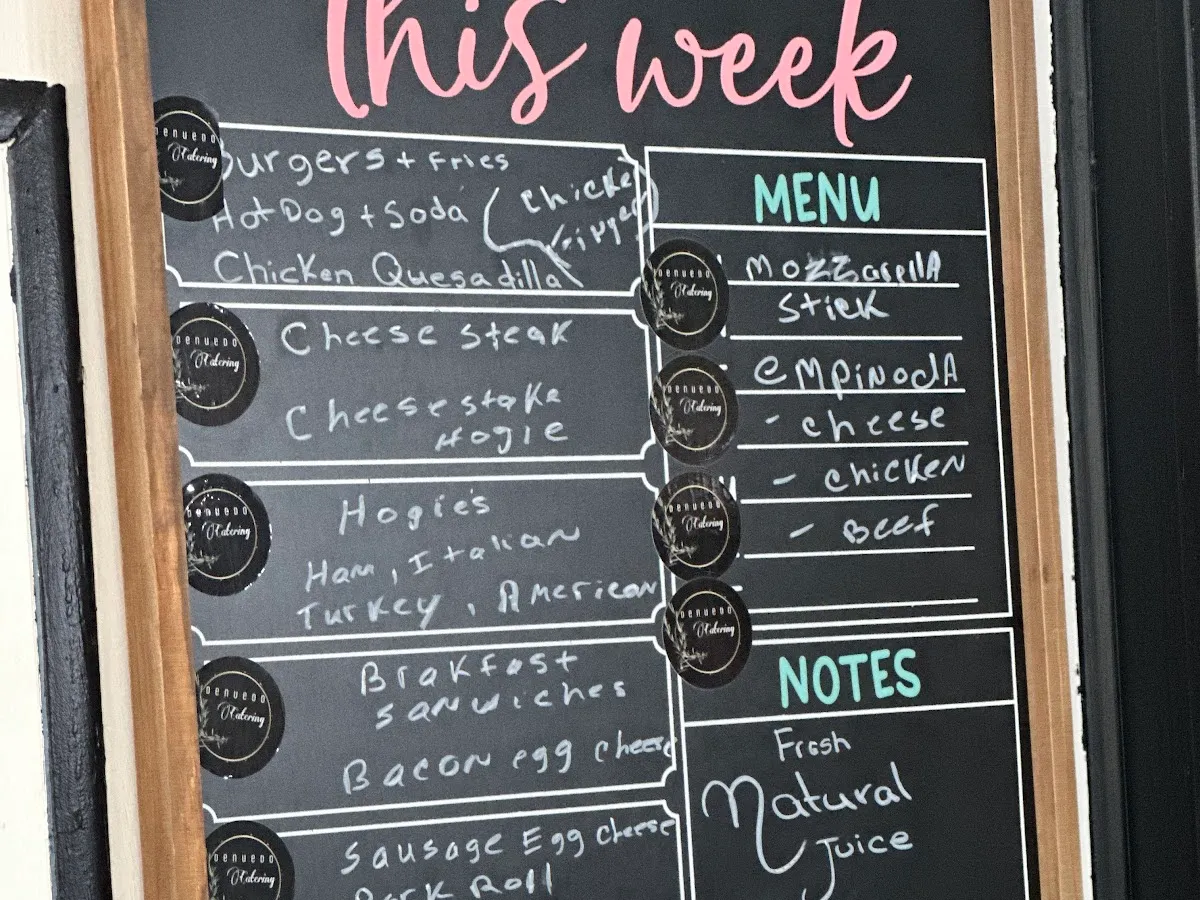 this week
Burgers + Fries
Hot Dog + Soda
Chicken Finger
Chicken Quesadilla
Cheese steak
Cheesestake
Hogie
Hogie's
Ham, Italian
Turkey, American
Brakfast
sanwiches
Bacon egg cheese
Sausage Egg cheese
Pork Roll
MENU
Mozzarella
Stick
empinoda
- cheese
- chicken
- Beef
NOTES
Fresh
Natural
Juice
Denuedo
Catering
Denuedo
Catering
Denuedo
Catering
Denuedo
Catering
Denuedo
Catering
Denuedo
Catering
Denuedo
Catering
Denuedo
Catering
Denuedo
Catering